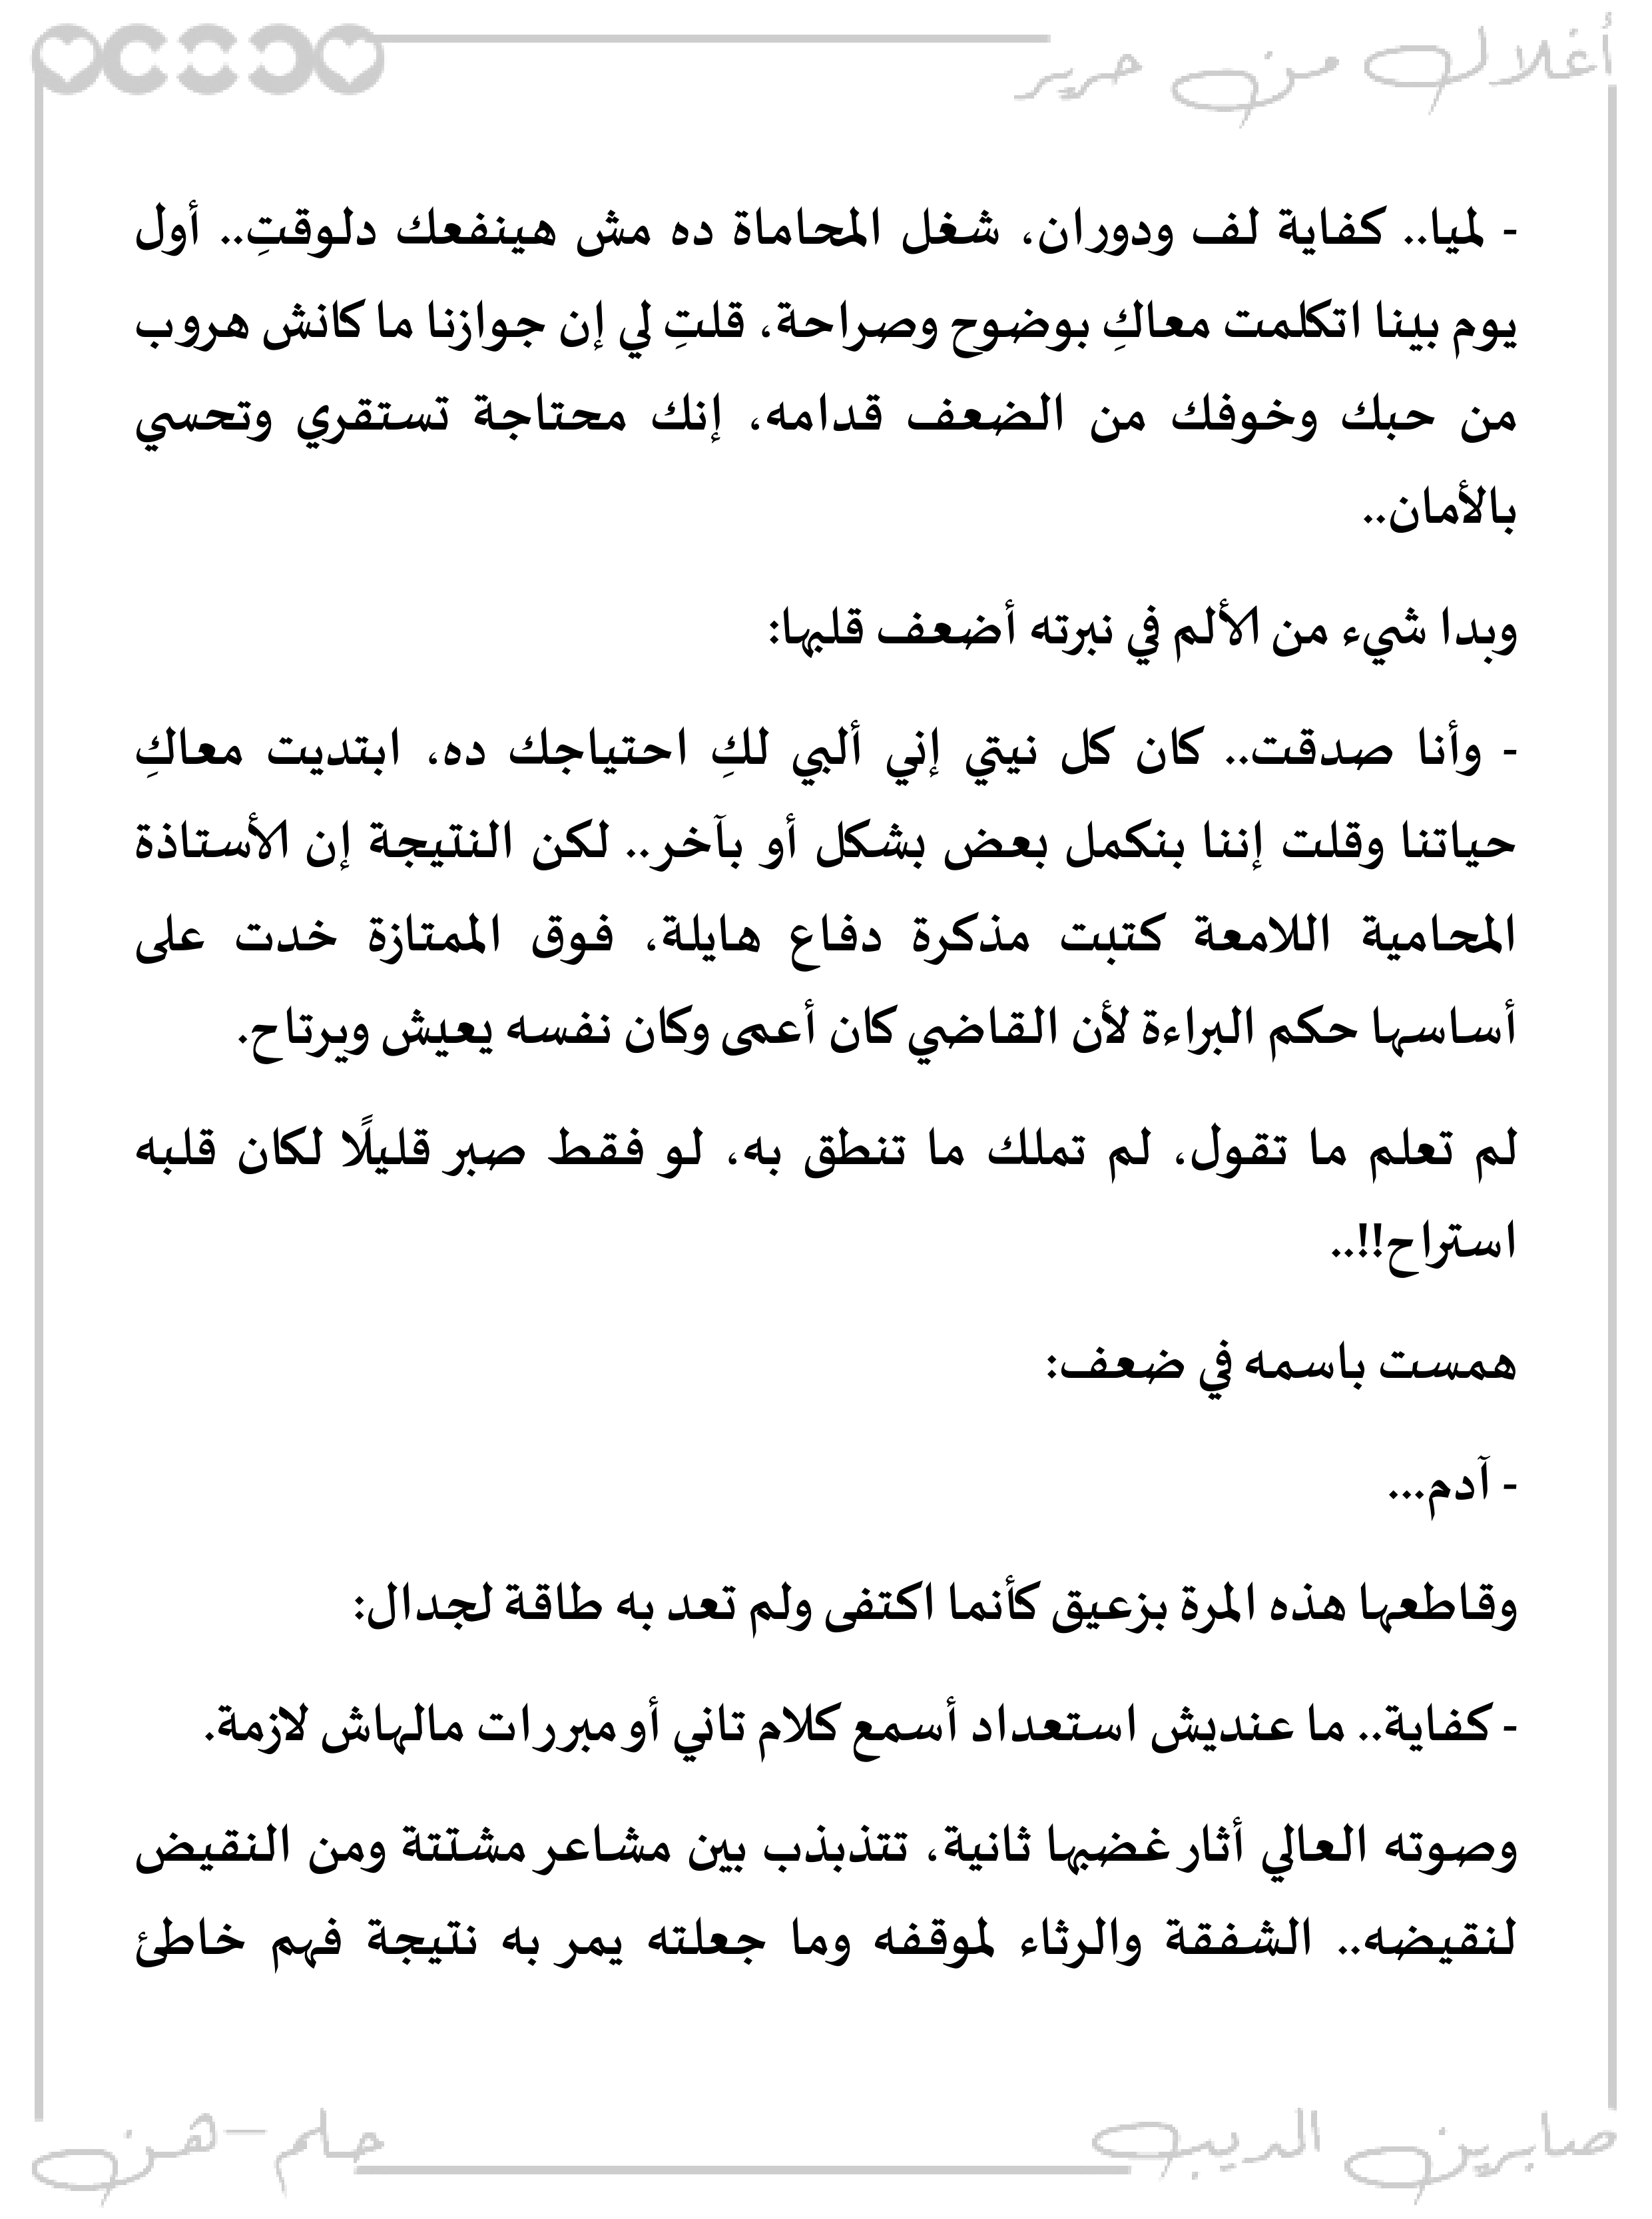 أغلال من حرير
- لميا.. كفاية لف ودوران، شغل المحاماة ده مش هينفعك دلوقتِ.. أول
يوم بينا اتكلمت معاكِ بوضوح وصراحة، قلتِ لي إن جوازنا ما كانش هروب
من حبك وخوفك من الضعف قدامه، إنك محتاجة تستقري وتحسي
بالأمان..
وبدا شيء من الألم في نبرته أضعف قلبها:
- وأنا صدقت.. كان كل نيتي إني ألبي لكِ احتياجك ده، ابتديت معاكِ
حياتنا وقلت إننا بنكمل بعض بشكل أو بآخر.. لكن النتيجة إن الأستاذة
المحامية اللامعة كتبت مذكرة دفاع هايلة، فوق الممتازة خدت على
أساسها حكم البراءة لأن القاضي كان أعمى وكان نفسه يعيش ويرتاح.
لم تعلم ما تقول، لم تملك ما تنطق به، لو فقط صبر قليلًا لكان قلبه
استراح!!..
همست باسمه في ضعف:
- آدم...
وقاطعها هذه المرة بزعيق كأنما اكتفى ولم تعد به طاقة لجدال:
- كفاية.. ما عنديش استعداد أسمع كلام تاني أو مبررات مالهاش لازمة.
وصوته العالي أثار غضبها ثانية، تتذبذب بين مشاعر مشتتة ومن النقيض
لنقيضه.. الشفقة والرثاء لموقفه وما جعلته يمر به نتيجة فهم خاطئ
صابرين الديب
حلم-هن